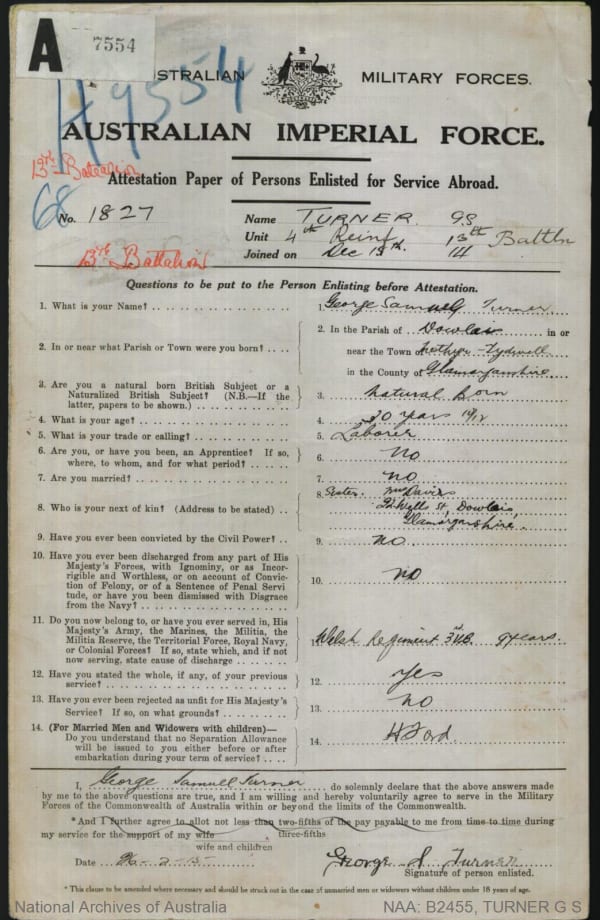 A
7554
H9554
AUSTRALIAN MILITARY FORCES.
AUSTRALIAN IMPERIAL FORCE.
13th Battalion
Attestation Paper of Persons Enlisted for Service Abroad.
68
No. 1827
Name TURNER GS
Unit 4th Reinf 13th Battln
Joined on Dec 15th 14
Questions to be put to the Person Enlisting before Attestation.
1. What is your Name?
1. George Samuel Turner
2. In or near what Parish or Town were you born?
2. In the Parish of Dowlais in or
near the Town of
in the County of Glamorganshire
3. Are you a natural born British Subject or a
Naturalized British Subject? (N.B.—If the
latter, papers to be shown.)
3. Natural Born
4. What is your age?
4. 30 years
5. What is your trade or calling?
5. Laborer
6. Are you, or have you been, an Apprentice? If so,
where, to whom, and for what period?
6. no
7. Are you married?
7. no
8. Who is your next of kin? (Address to be stated)
8. Sister. Mrs Davies
Wells St, Dowlais,
Glamorganshire.
9. Have you ever been convicted by the Civil Power?
9. no
10. Have you ever been discharged from any part of His
Majesty's Forces, with Ignominy, or as Incor-
rigible and Worthless, or on account of Convic-
tion of Felony, or of a Sentence of Penal Servi
tude, or have you been dismissed with Disgrace
from the Navy?
10. no
11. Do you now belong to, or have you ever served in, His
Majesty's Army, the Marines, the Militia, the
Militia Reserve, the Territorial Force, Royal Navy,
or Colonial Forces? If so, state which, and if not
now serving, state cause of discharge
Welsh Regiment 3rd years.
12. Have you stated the whole, if any, of your previous
service?
12. yes
13. Have you ever been rejected as unfit for His Majesty's
Service? If so, on what grounds?
13. no
14. (For Married Men and Widowers with children)—
Do you understand that no Separation Allowance
will be issued to you either before or after
embarkation during your term of service?
14. H Ford
I, George Samuel Turner do solemnly declare that the above answers made
by me to the above questions are true, and I am willing and hereby voluntarily agree to serve in the Military
Forces of the Commonwealth of Australia within or beyond the limits of the Commonwealth.
*And I further agree to allot not less than two-fifths of the pay payable to me from time to time during
three-fifths
my service for the support of my wife
wife and children
Date 26-2-15
George S Turner
Signature of person enlisted.
* This clause to be amended where necessary and should be struck out in the case of unmarried men or widowers without children under 18 years of age.
National Archives of Australia
NAA: B2455, TURNER G S
13th Battalion